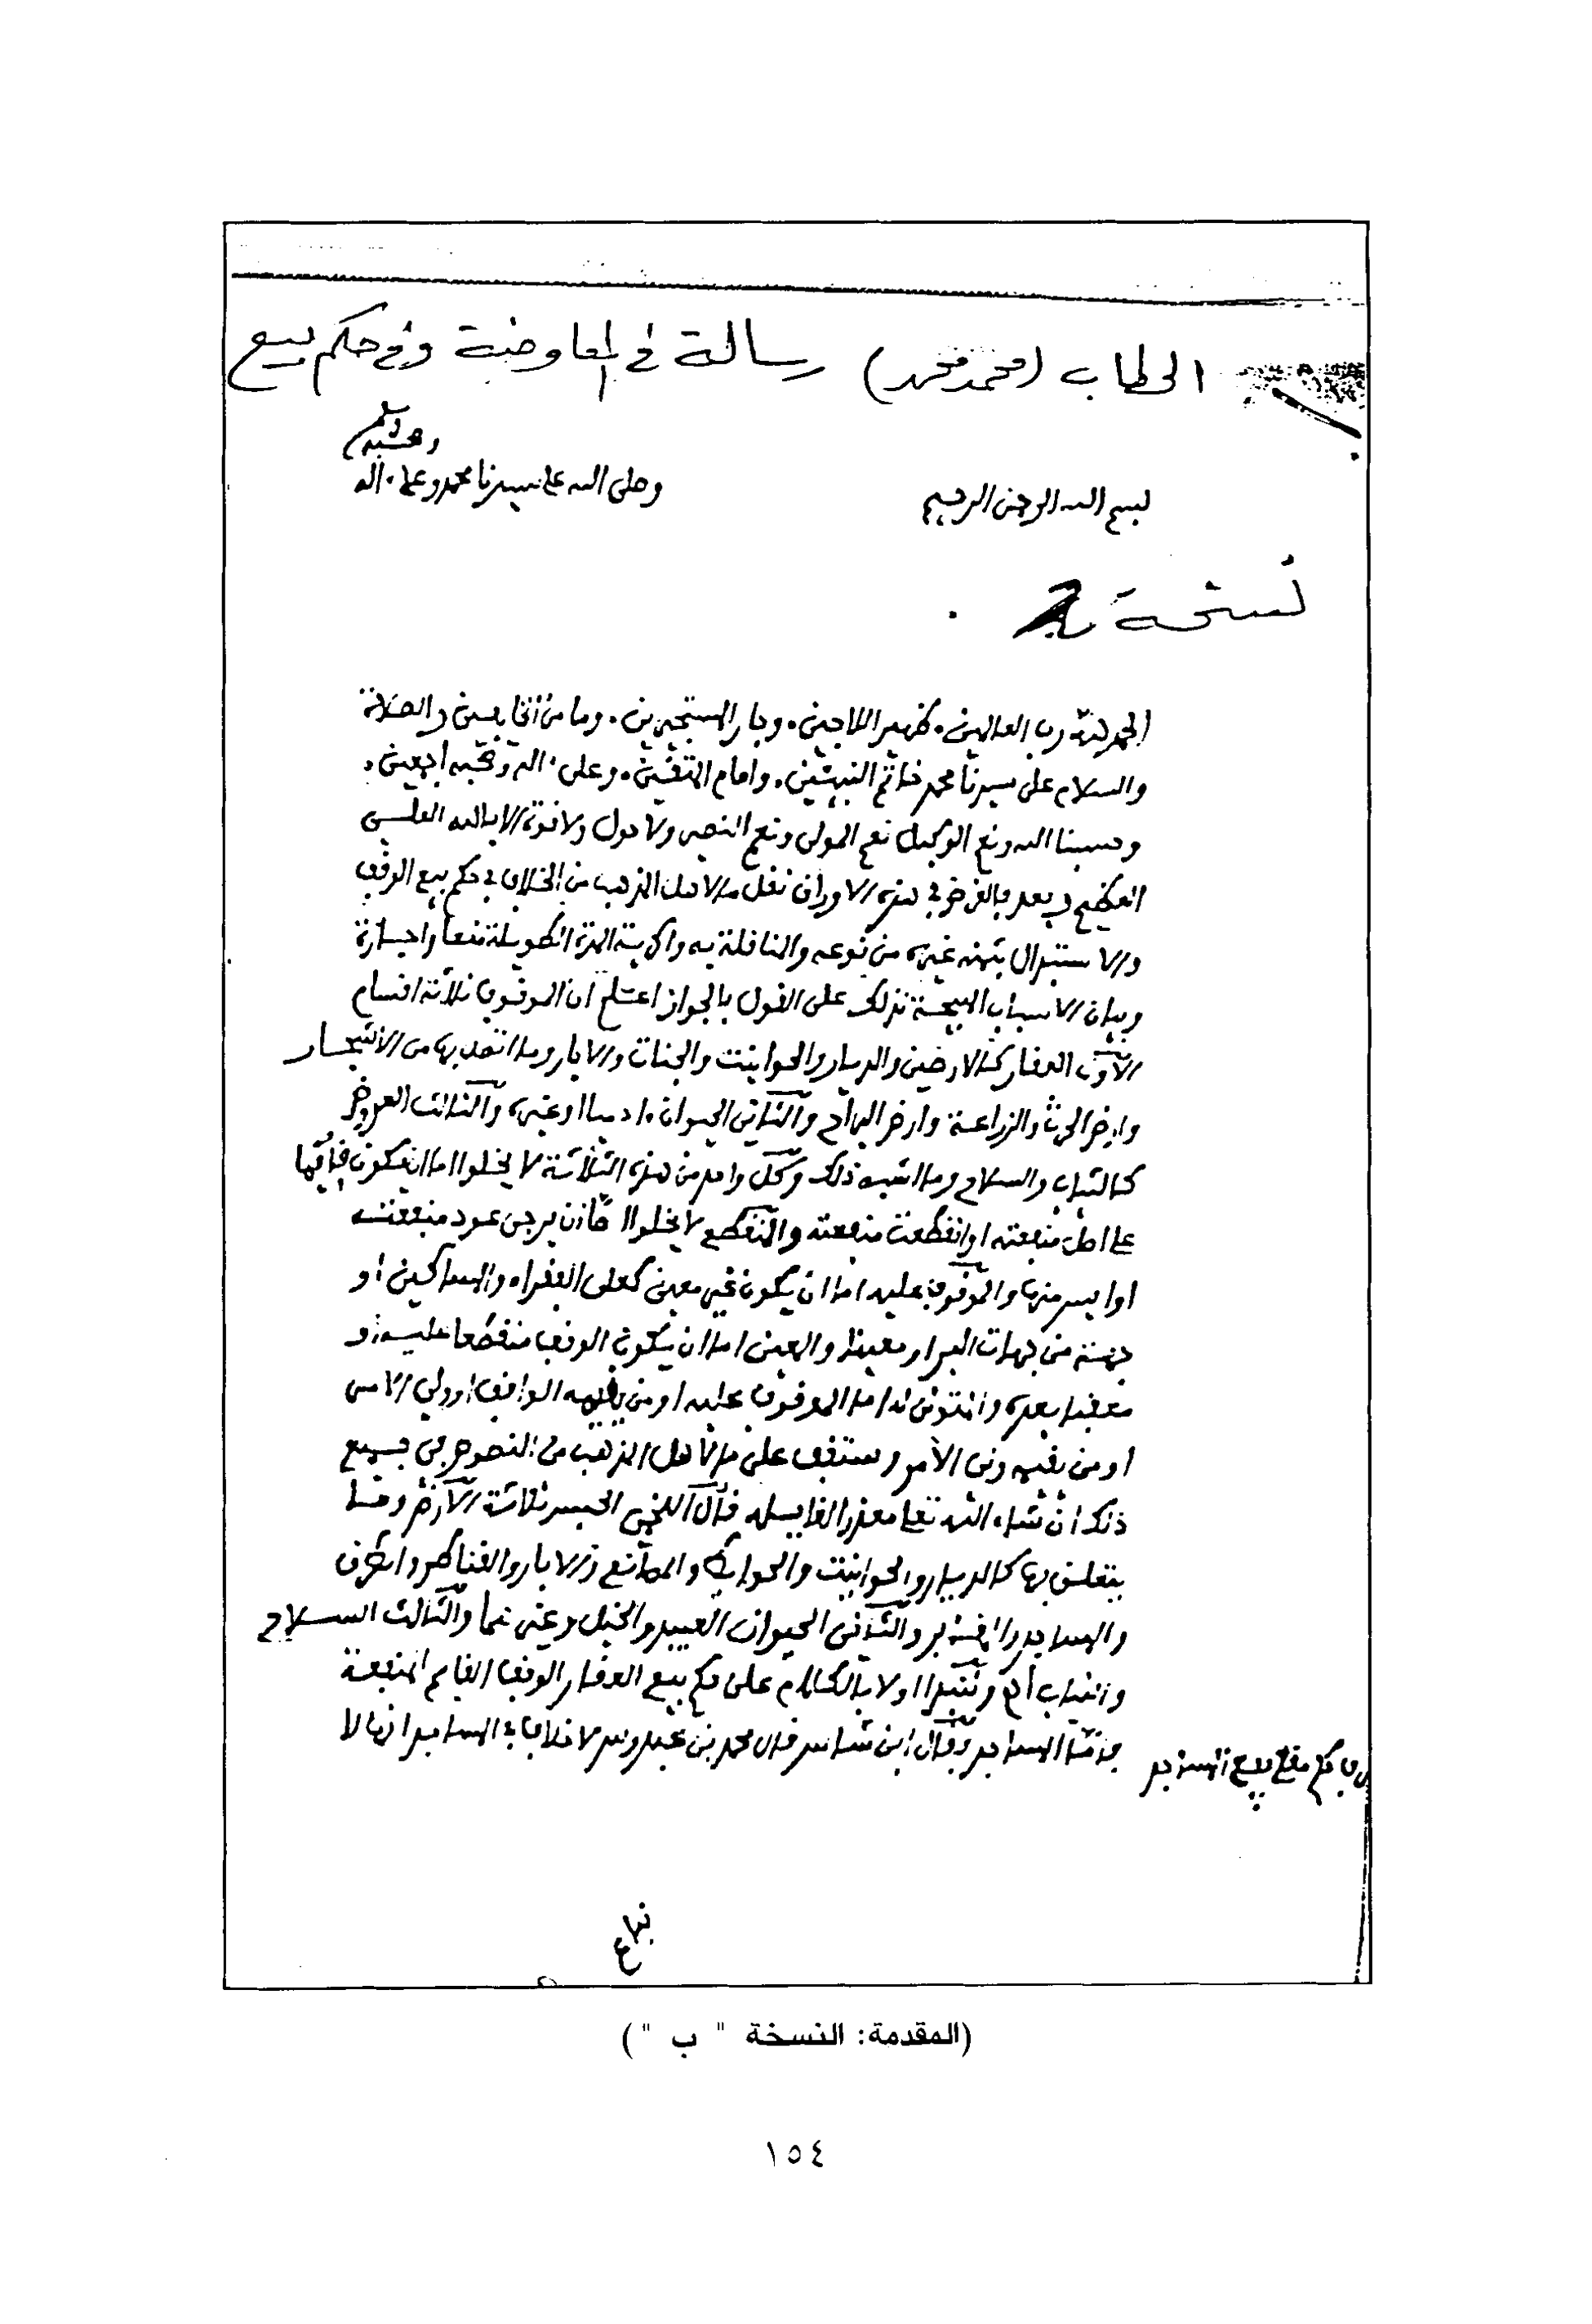 الحطاب (محمد محمد) رسالة في المعاوضة وفي حكم بيع
وصحبه وسلم
بسم الله الرحمن الرحيم وصلى الله على سيدنا محمد وعلى ءاله
نسخة
الحمد لله رب العالمين. ظهير اللاجين. وجار المستجيرين. ومامن الخايفين والصلاة
والسلام على سيدنا محمد خاتم النبيئين. وامام المتقين. وعلى ءاله وصحبه اجمعين.
وحسبنا الله ونعم الوكيل نعم المولى ونعم النصير ولا حول ولا قوة الا بالله العلي
العظيم وبعد فالغرض في هذه الاوراق نقل ما لاهل المذهب من الخلاف في حكم بيع الوقف
والاستبدال بثمنه غيره من نوعه والمناقلة به واكريته المدة الطويلة منعا واجازة
وبيان الاسباب المبيحة لذلك على القول بالجواز اعلم ان الموقوف ثلاثة اقسام
الاول العقار كالارضين والديار والحوانيت والجنات والابار وما اتصل بها من الاشجار
وارض الحرث والزراعة وارض البراح والثاني الحيوان ادميا او غيره والثالث العروض
كالثياب والسلاح وما اشبه ذلك وكل واحد من هذه الثلاثة لا يخلوا اما ان يكون قايما
على اصل منفعته او انقطعت منفعته والمنقطع لا يخلوا اما ان يرجى عود منفعته
او ايس منها والموقوف عليه اما ان يكون غير معين كعلى الفقراء والمساكين او
جهة من جهات البر او معينا والمعين اما ان يكون الوقف منقطعا عليه او
معقبا بعده والمتولى له اما الموقوف عليه او من يقيمه الواقف او ولي الامر
او من يقيمه ولي الامر وستقف على ما لاهل المذهب من النصوص في جميع
ذلك ان شاء الله تعلى معزوا لقايله قال اللخمي الحبس ثلاثة الارض وما
يتعلق بها كالديار والحوانيت والحوايط والمصانع والابار والقناطر والطرق
والمساجد والمقابر والثاني الحيوان العبيد والخيل وغيرهما والثالث السلاح
والثياب اه ولنبدا اولا بالكلام على حكم بيع العقار الوقف القايم المنفعة
فاما المساجد فقال ابن شاس قال محمد بن عبدوس لا خلاف في المساجد انها لا
حكم منع بيع المساجد
تباع
(المقدمة: النسخة " ب ")
١٥٤